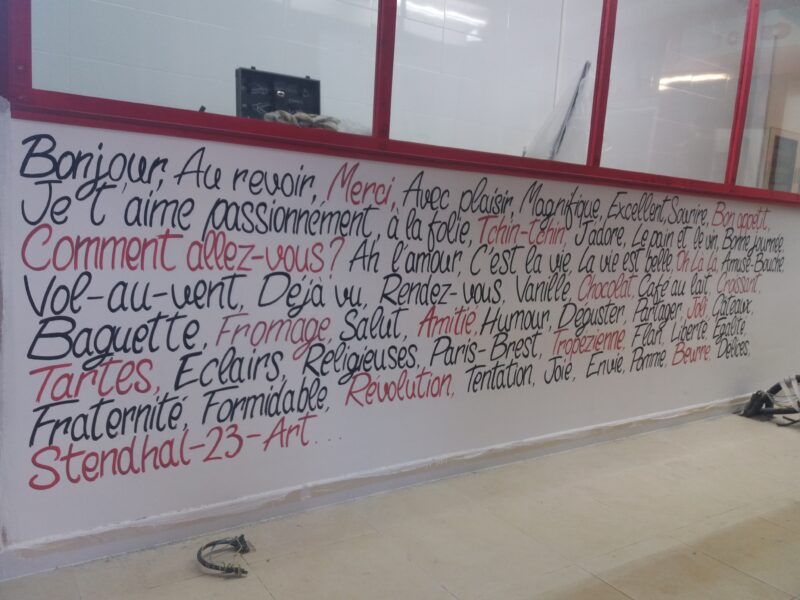 Bonjour, Au revoir, Merci, Avec plaisir, Magnifique, Excellent, Sourire, Bon appetit,
Je t'aime passionnément, à la folie, Tchin-tchin, J'adore, Le pain et le vin, Bonne journée,
Comment allez-vous? Ah l'amour, C'est la vie, La vie est belle, Oh Là Là, Amuse-Bouche,
Vol-au-vent, Déjà vu, Rendez-vous, Vanille, Chocolat, Café au lait, Croissant,
Baguette, Fromage, Salut, Amitié, Humour, Déguster, Partager, Joli, Gâteaux,
Tartes, Eclairs, Religieuses, Paris-Brest, Tropézienne, Flan, Liberté, Égalité,
Fraternité, Formidable, Révolution, Tentation, Joie, Envie, Pomme, Beurre, Délices,
Stendhal-23-Art...